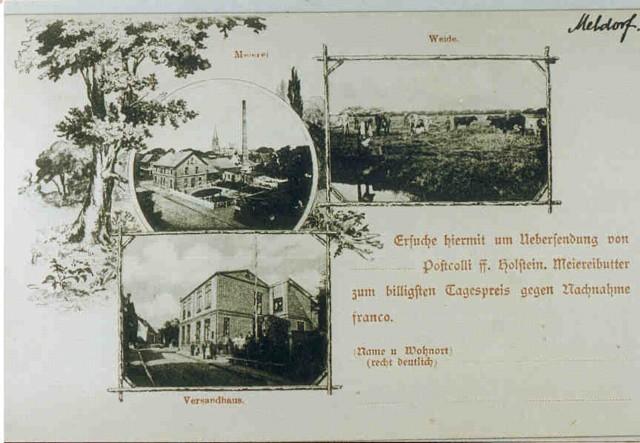 Meldorf.
Meierei
Weide.
Ersuche hiermit um Uebersendung von
Postcolli ff. Holstein. Meiereibutter
zum billigsten Tagespreis gegen Nachnahme
franco.
(Name u Wohnort)
(recht deutlich)
Versandhaus.